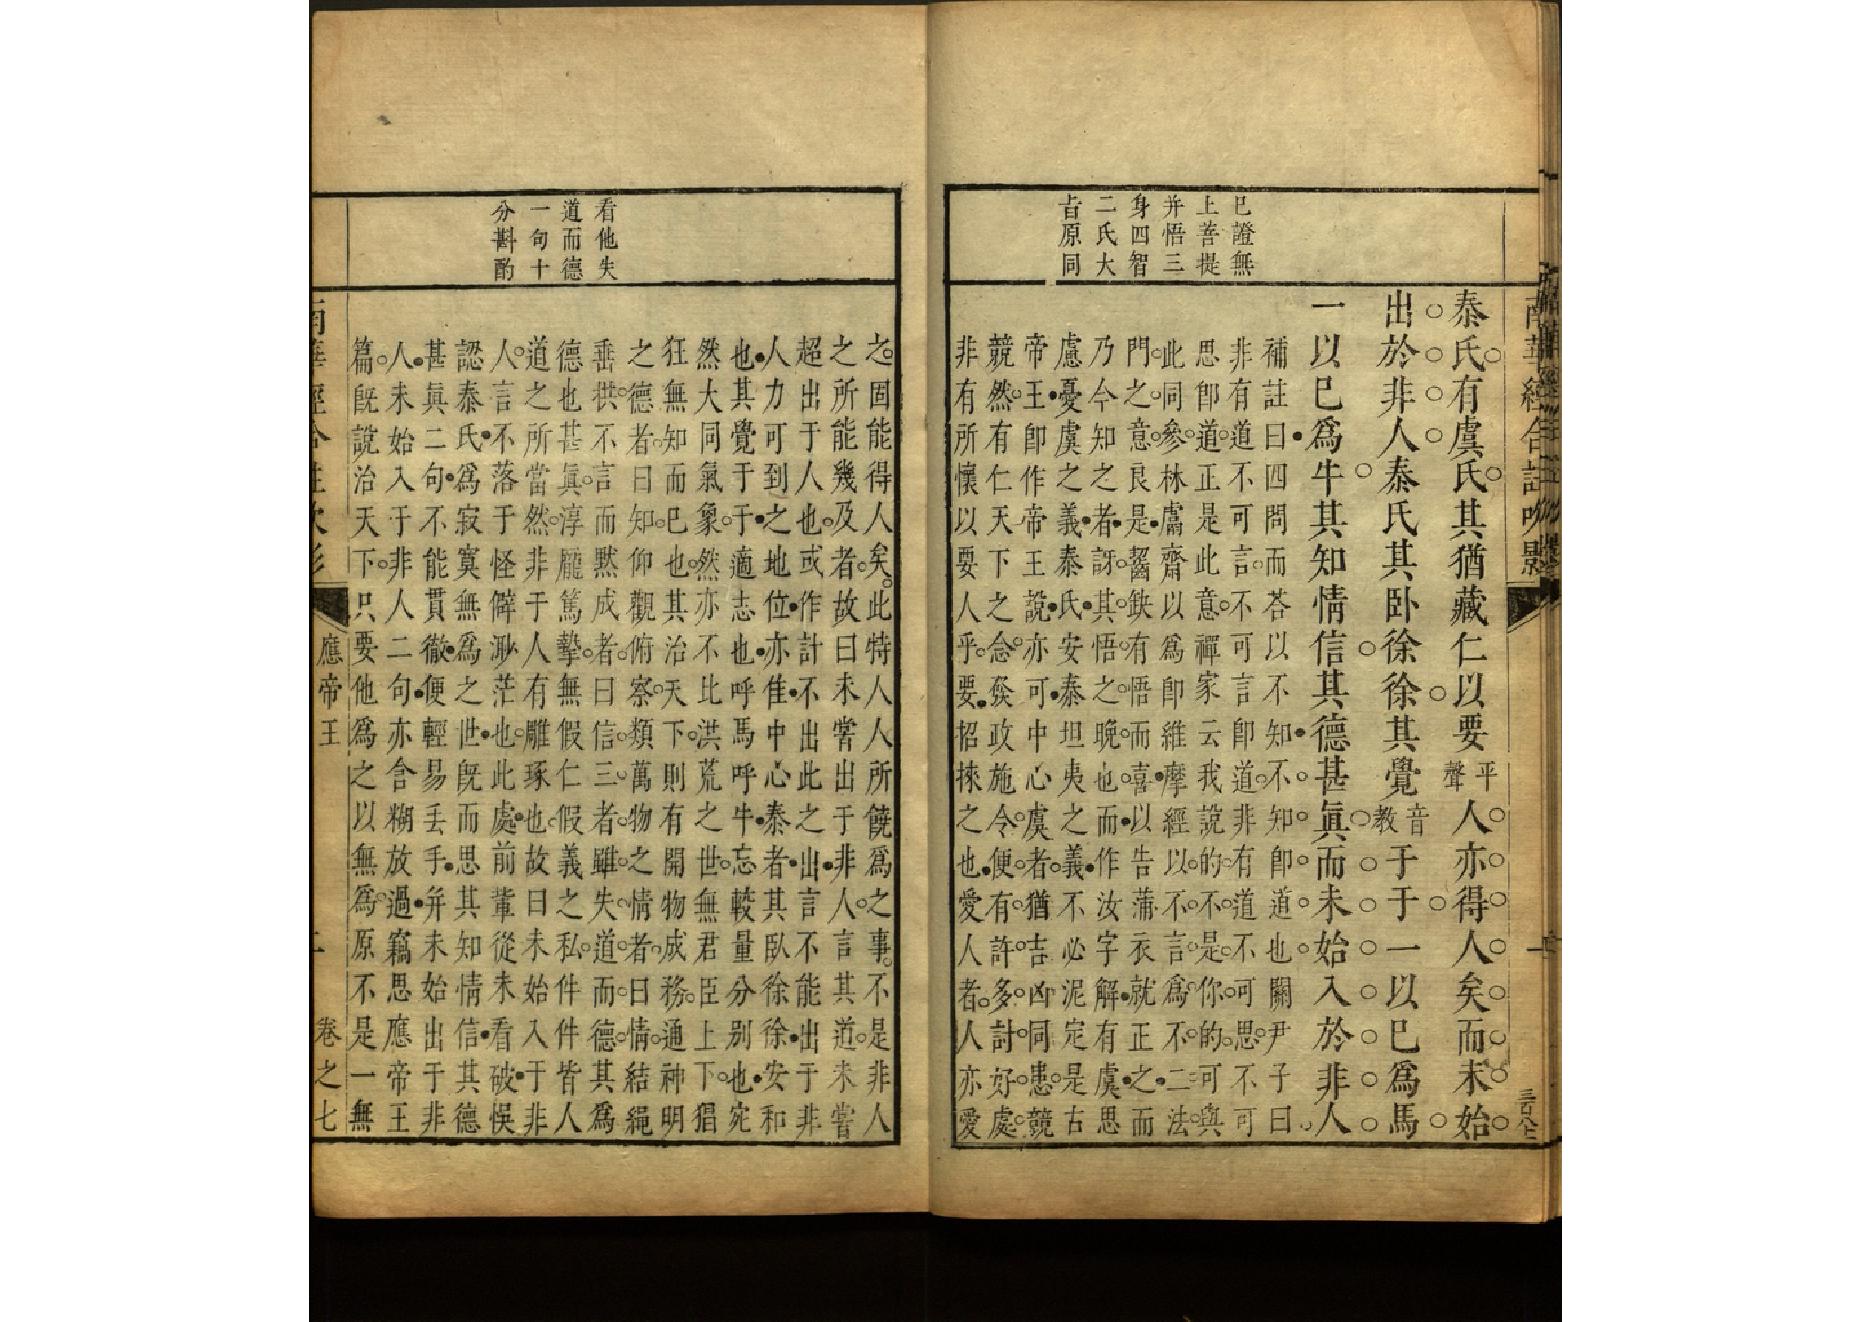 已證無
上菩提
并悟三
身四智
二氏大
旨原同
泰氏有虞氏其猶藏仁以要平聲人亦得人矣而未始
出於非人泰氏其卧徐徐其覺音教于于一以已爲馬
一以已爲牛其知情信其德甚眞而未始入於非人
補註曰四問而荅以不知不知卽道也關尹子曰
非有道不可言不可言卽道非有道不可思不可
思卽道正是此意禪家云我說的不是你的可與
此同參林鬳齋以爲卽維摩經以不言爲不二法
門之意良是齧缺有悟而喜以告蒲衣就正之而
乃今知之者訝其悟之晚也而作汝字解有虞思
慮憂虞之義泰氏安泰坦夷之義不必泥定是古
帝王卽作帝王說亦可中心虞者猶吉凶同患競
競然有仁天下之念發政施令便有許多討好處
非有所懷以要人乎要招徠之也愛人者人亦愛
看他失
道而德
一句十
分斟酌
之固能得人矣此特人人所饒爲之事不是非人
之所能幾及者故曰未嘗出于非人言其道未嘗
超出于人也或作計不出此之出言不能出于非
人力可到之地位亦隹中心泰者其臥徐徐安和
也其覺于于適志也呼馬呼牛忘較量分别也宛
然大同氣象然亦不比洪荒之世無君臣上下猖
狂無知而已也其治天下則有開物成務通神明
之德者曰知仰觀俯察類萬物之情者曰情結繩
垂拱不言而黙成者曰信三者雖失道而德其爲
德也甚眞淳龐篤摯無假仁假義之私件件皆人
道之所當然非于人有雕琢也故曰未始入于非
人言不落于怪僻渺茫也此處前輩從未看破悞
認泰氏爲寂寞無爲之世旣而思其知情信其德
甚眞二句不能貫徹便輕易丟手并未始出于非
人未始入于非人二句亦含糊放過竊思應帝王
篇旣說治天下只要他爲之以無爲原不是一無
應帝王
卷之七